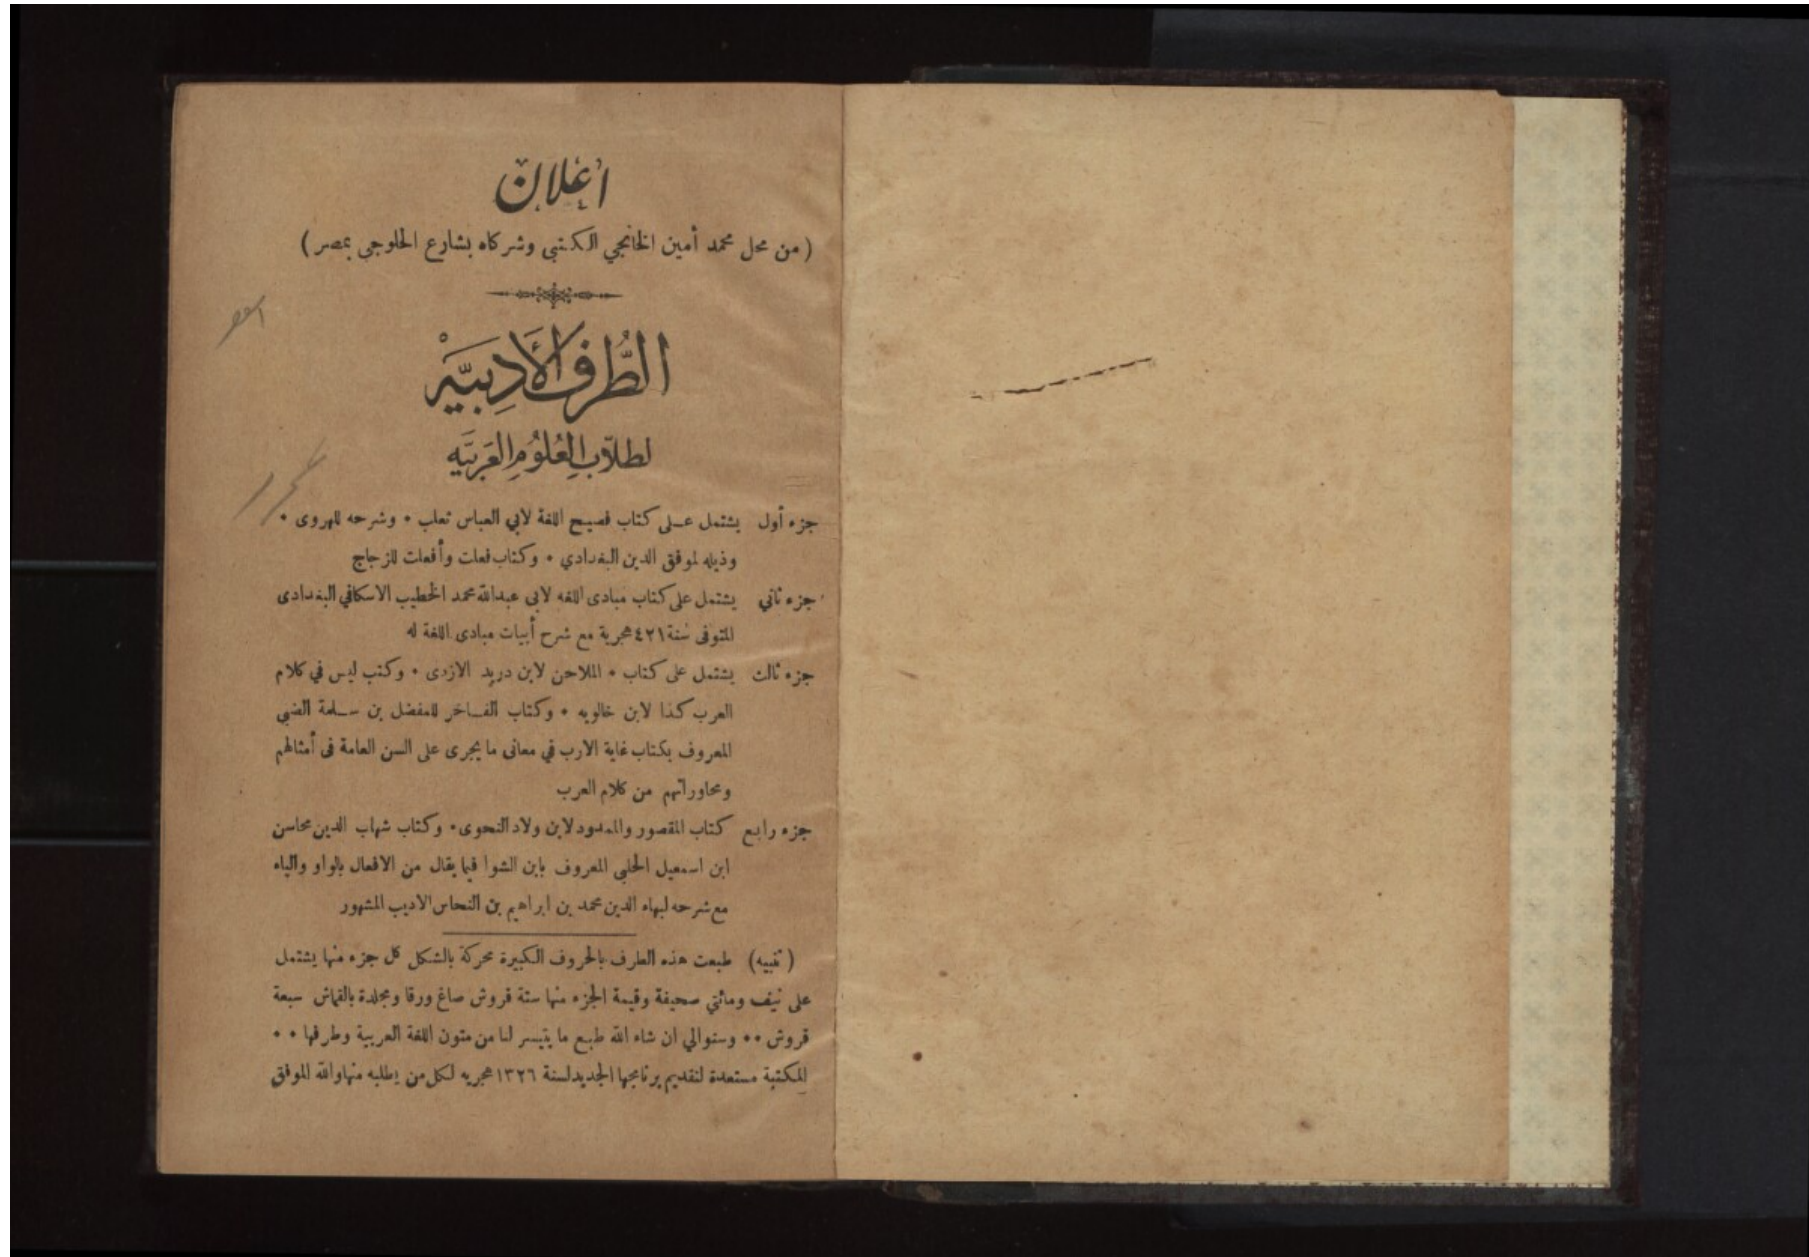 اعلان
(من محل محمد أمين الخانجي الكتبي وشركاه بشارع الحلوجي بمصر)
الطُّرف الأَدِبيَّه
لطلاَّبِ العُلُومِ العَرَبيَّه
جزء أول يشتمل على كتاب فصيح اللغة لابي العباس ثعلب * وشرحه للهروى *
وذيله لموفق الدين البغدادي * وكتاب فعلت وأفعلت للزجاج
جزء ثاني يشتمل على كتاب مبادى اللغه لابي عبدالله محمد الخطيب الاسكافي البغدادى
المتوفى سنة ٤٢١ هجرية مع شرح أبيات مبادى اللغة له
جزء ثالث يشتمل على كتاب * الملاحن لابن دريد الازدى * وكتب ليس في كلام
العرب كذا لابن خالويه * وكتاب الفاخر للمفضل بن سلمة الضبي
المعروف بكتاب غاية الارب في معانى ما يجرى على السن العامة فى أمثالهم
ومحاوراتهم من كلام العرب
جزء رابع كتاب المقصور والممدود لابن ولاد النحوى * وكتاب شهاب الدين محاسن
ابن اسمعيل الحلبي المعروف بابن الشوا فيما يقال من الافعال بالواو والياء
مع شرحه لبهاء الدين محمد بن ابراهيم بن النحاس الاديب المشهور
(تنبيه) طبعت هذه الطرف بالحروف الكبيرة محركة بالشكل كل جزء منها يشتمل
على نيف ومائتي صحيفة وقيمة الجزء منها ستة قروش صاغ ورقا ومجلدة بالقماش سبعة
قروش ** وسنوالي ان شاء الله طبع ما يتيسر لنا من متون اللغة العربية وطرفها **
المكتبة مستعدة لتقديم برنامجها الجديد لسنة ١٣٢٦ هجريه لكل من يطلبه منها والله الموفق